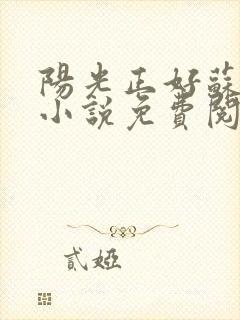 陽光正好蘇
小說免費閱
貳婭